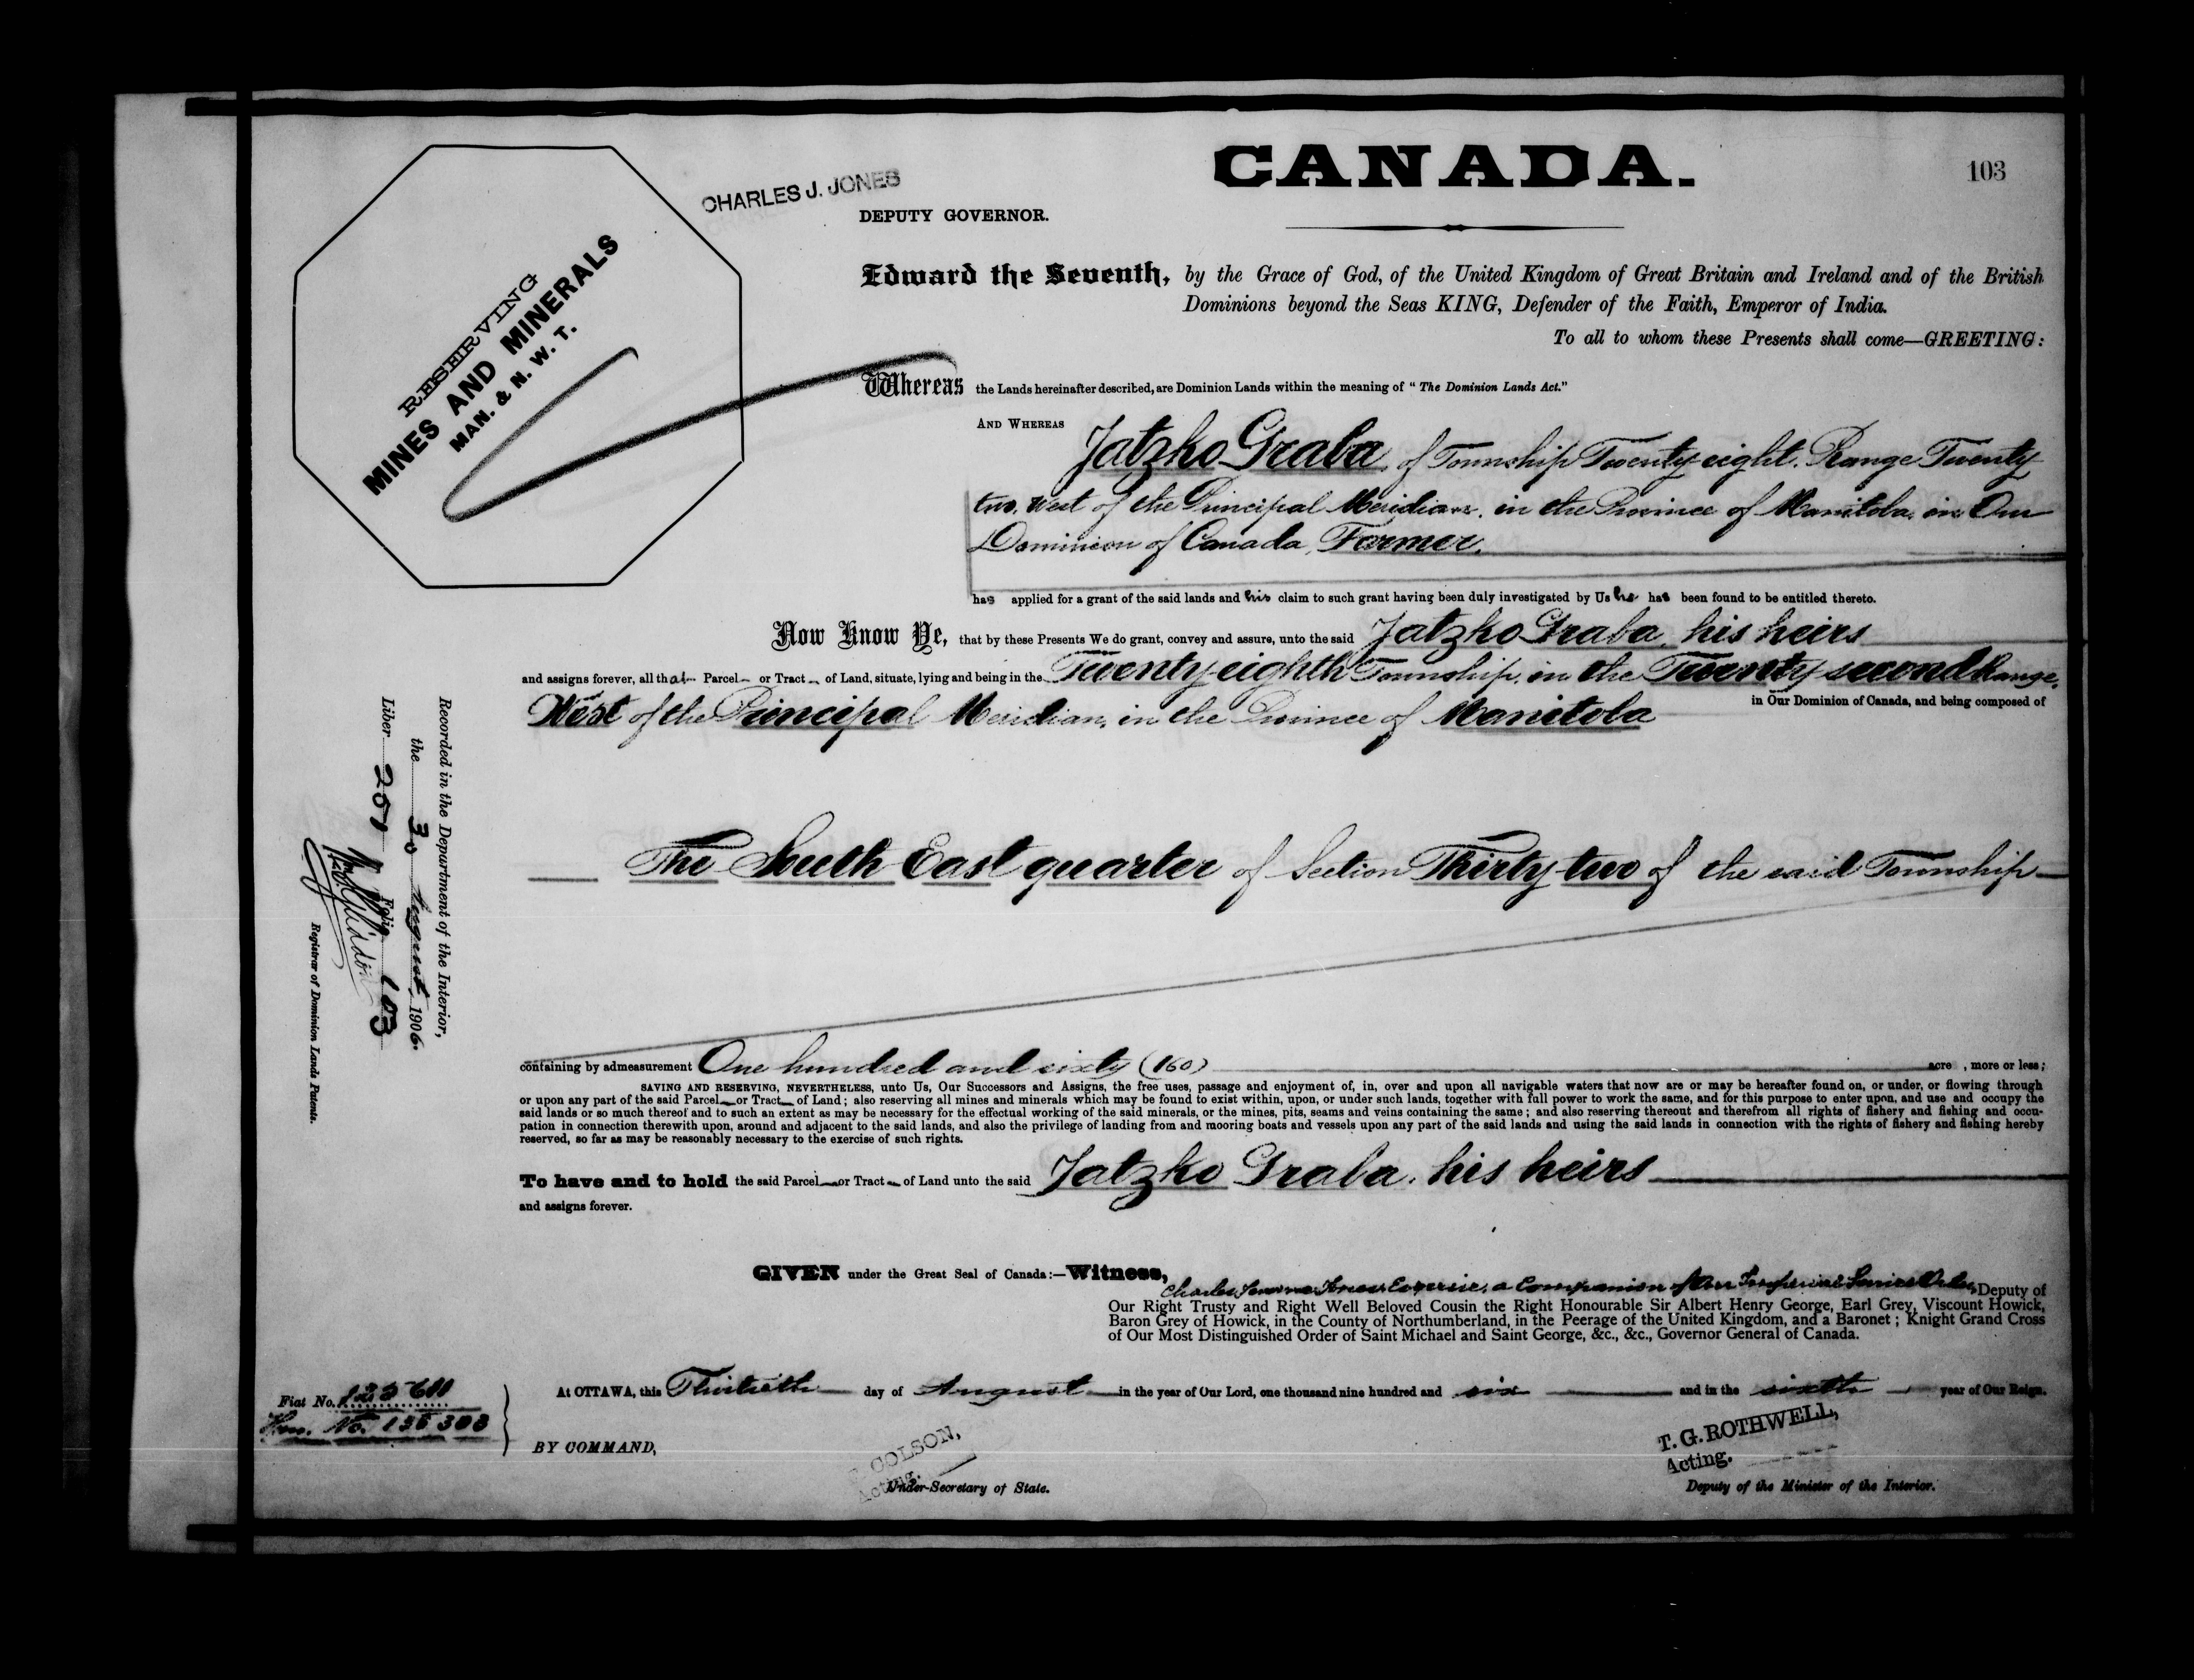 CANADA.
103
CHARLES J. JONES
DEPUTY GOVERNOR.
RESERVING
MINES AND MINERALS
MAN. & N. W. T.
Edward the Seventh, by the Grace of God, of the United Kingdom of Great Britain and Ireland and of the British
Dominions beyond the Seas KING, Defender of the Faith, Emperor of India.
To all to whom these Presents shall come—GREETING:
Whereas the Lands hereinafter described, are Dominion Lands within the meaning of "The Dominion Lands Act."
AND WHEREAS Jatzko Graba, of Township Twenty-eight, Range Twenty
two, West of the Principal Meridian, in the Province of Manitoba, in Our
Dominion of Canada, Farmer,
has applied for a grant of the said lands and his claim to such grant having been duly investigated by Us he has been found to be entitled thereto.
Now Know Ye, that by these Presents We do grant, convey and assure, unto the said Jatzko Graba, his heirs
and assigns forever, all that Parcel or Tract of Land, situate, lying and being in the Twenty-eighth Township, in the Twenty-second Range,
West of the Principal Meridian, in the Province of Manitoba in Our Dominion of Canada, and being composed of
The South East quarter of Section Thirty-two of the said Township
containing by admeasurement One hundred and sixty (160) acre , more or less;
SAVING AND RESERVING, NEVERTHELESS, unto Us, Our Successors and Assigns, the free uses, passage and enjoyment of, in, over and upon all navigable waters that now are or may be hereafter found on, or under, or flowing through
or upon any part of the said Parcel or Tract of Land; also reserving all mines and minerals which may be found to exist within, upon, or under such lands, together with full power to work the same, and for this purpose to enter upon, and use and occupy the
said lands or so much thereof and to such an extent as may be necessary for the effectual working of the said minerals, or the mines, pits, seams and veins containing the same; and also reserving thereout and therefrom all rights of fishery and fishing and occu-
pation in connection therewith upon, around and adjacent to the said lands, and also the privilege of landing from and mooring boats and vessels upon any part of the said lands and using the said lands in connection with the rights of fishery and fishing hereby
reserved, so far as may be reasonably necessary to the exercise of such rights.
To have and to hold the said Parcel or Tract of Land unto the said Jatzko Graba, his heirs
and assigns forever.
GIVEN under the Great Seal of Canada:—Witness,
Charles Jones Esquire, a Companion of Our Imperial Service Order, Deputy of
Our Right Trusty and Right Well Beloved Cousin the Right Honourable Sir Albert Henry George, Earl Grey, Viscount Howick,
Baron Grey of Howick, in the County of Northumberland, in the Peerage of the United Kingdom, and a Baronet; Knight Grand Cross
of Our Most Distinguished Order of Saint Michael and Saint George, &c., &c., Governor General of Canada.
At OTTAWA, this Thirtieth day of August in the year of Our Lord, one thousand nine hundred and six and in the sixth year of Our Reign.
BY COMMAND,
COLSON,
Acting.
Under-Secretary of State.
T. G. ROTHWELL,
Acting.
Deputy of the Minister of the Interior.
Fiat No.
No.
Recorded in the Department of the Interior,
the 30 August 1906.
Liber 201 Folio 103
Registrar of Dominion Lands Patents.